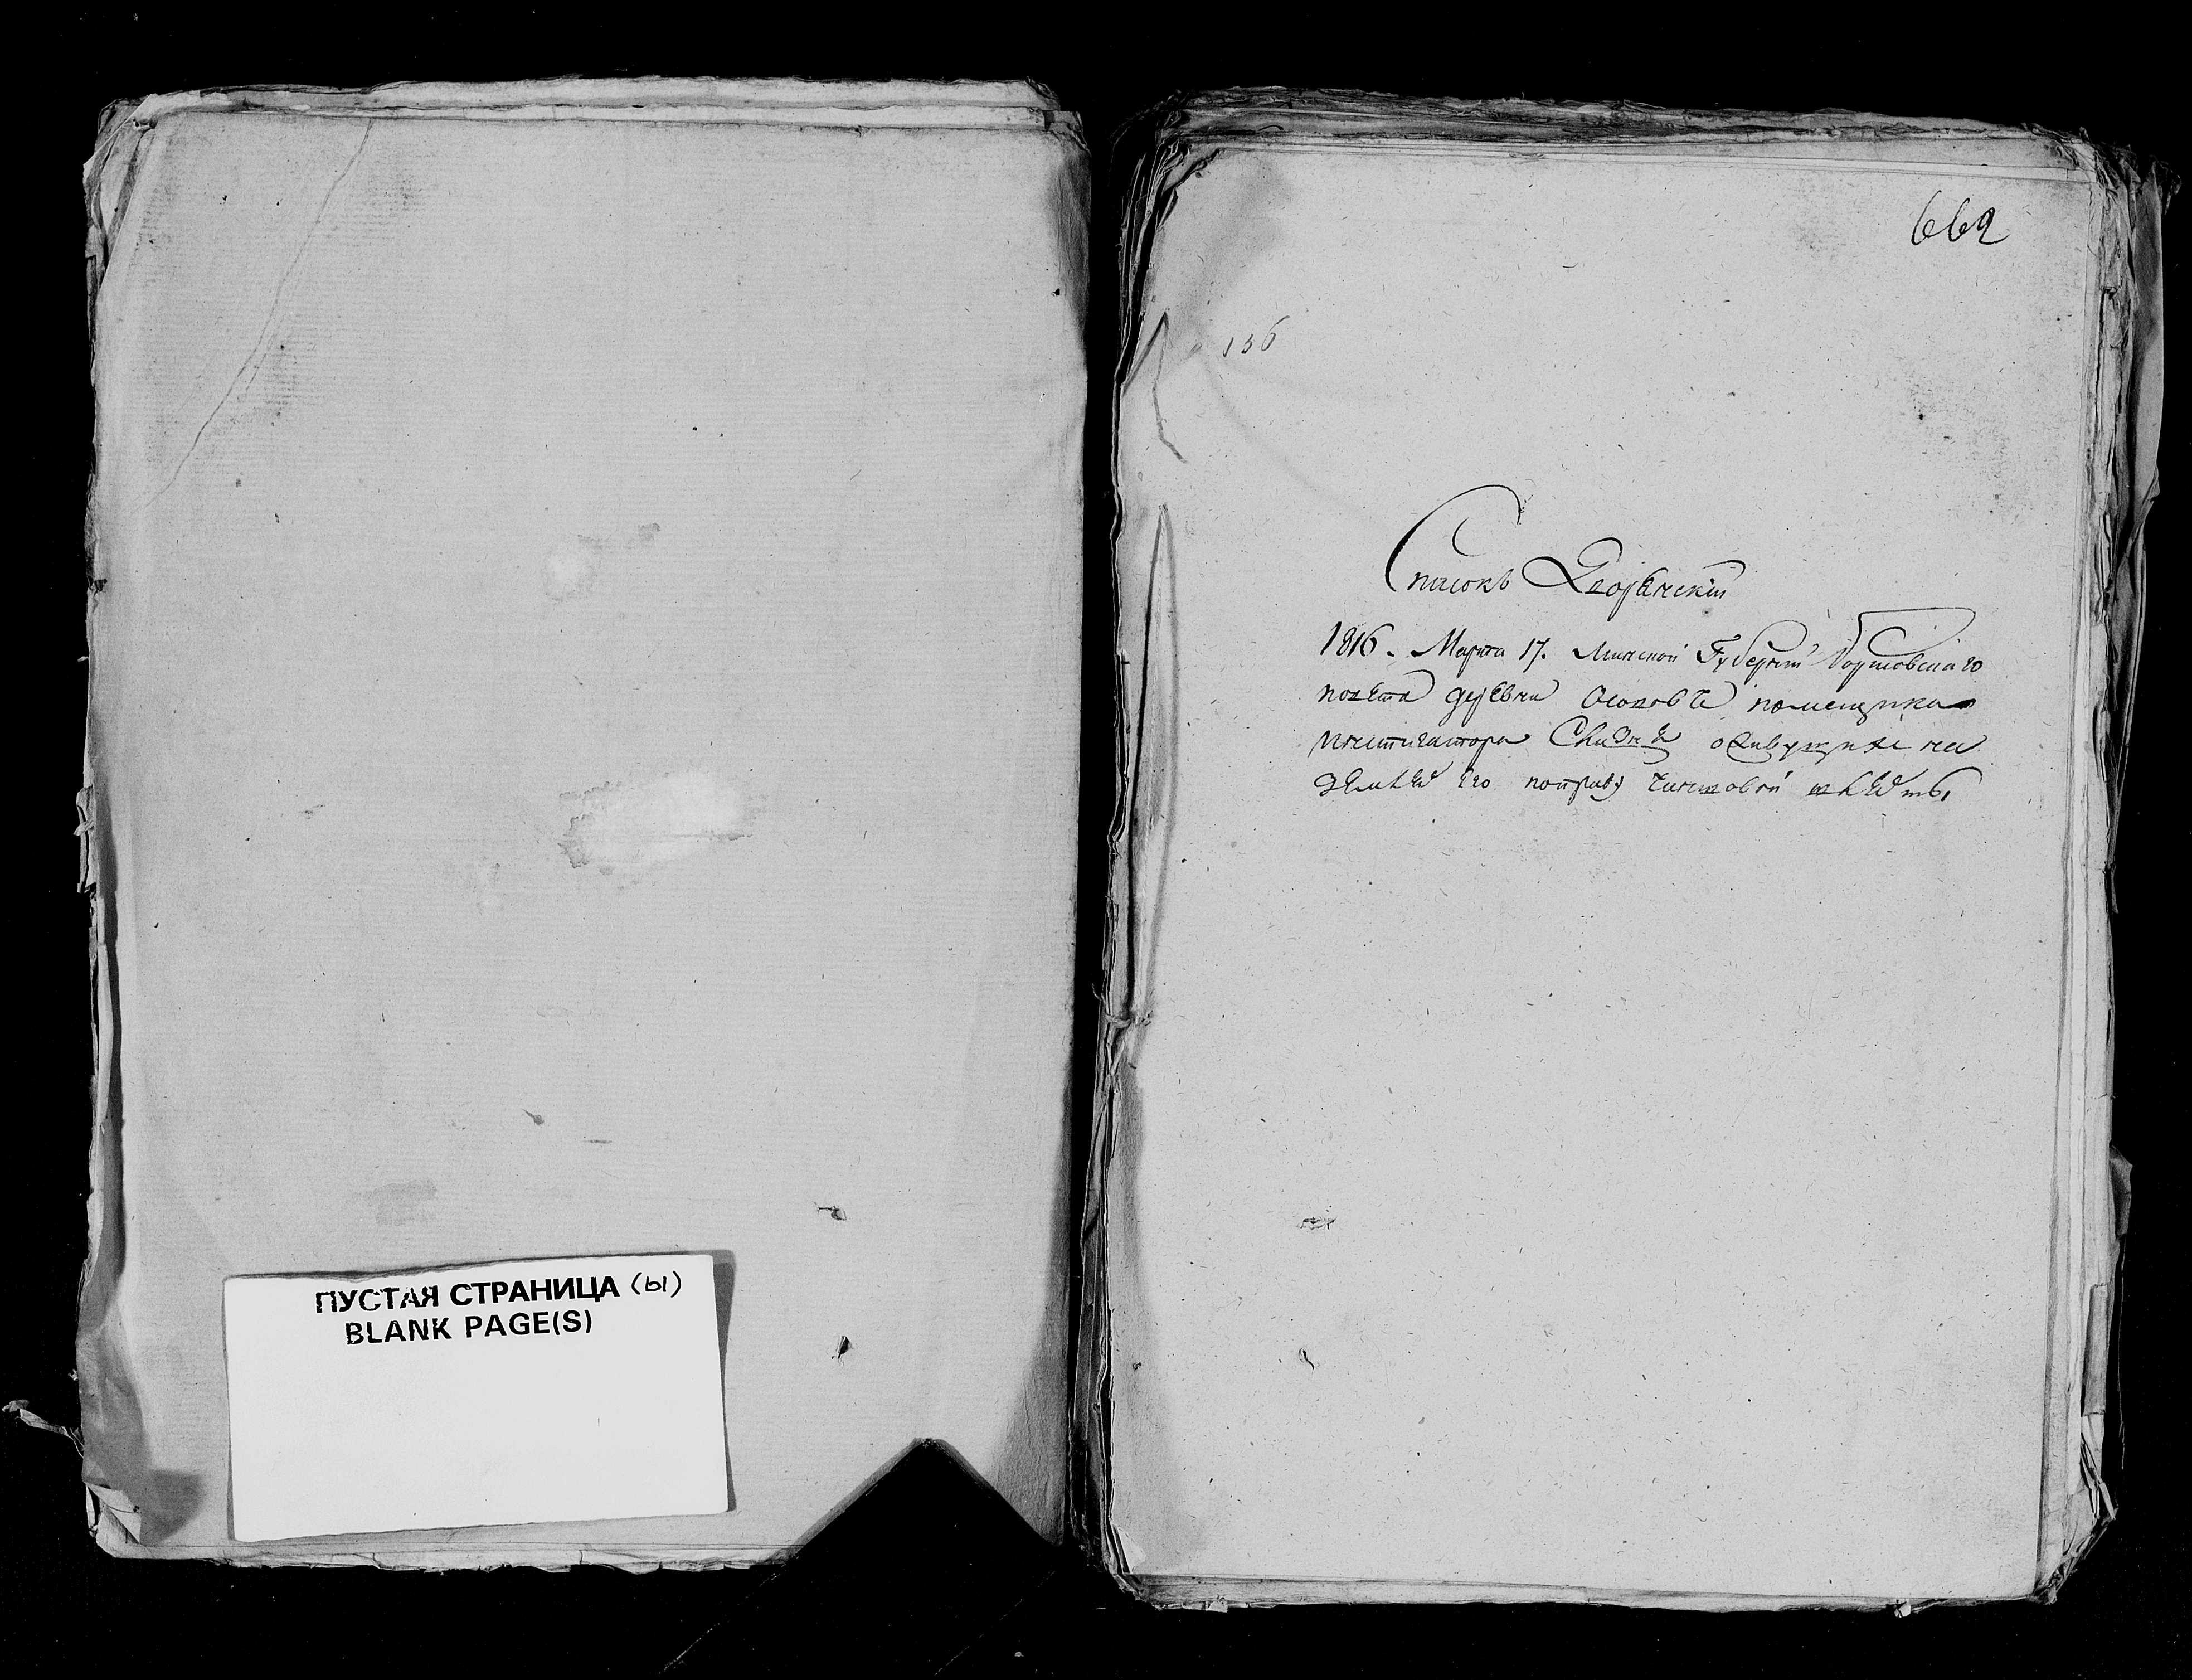 ПУСТАЯ СТРАНИЦА (ы)
BLANK PAGE(S)
662
136
Списокъ Дворянскій
1816. Марта 17. Минской Губерніи Борисовскаго
повѣта деревни помещика
инстигатора о живущихъ на
землѣ его поправу чиншовой